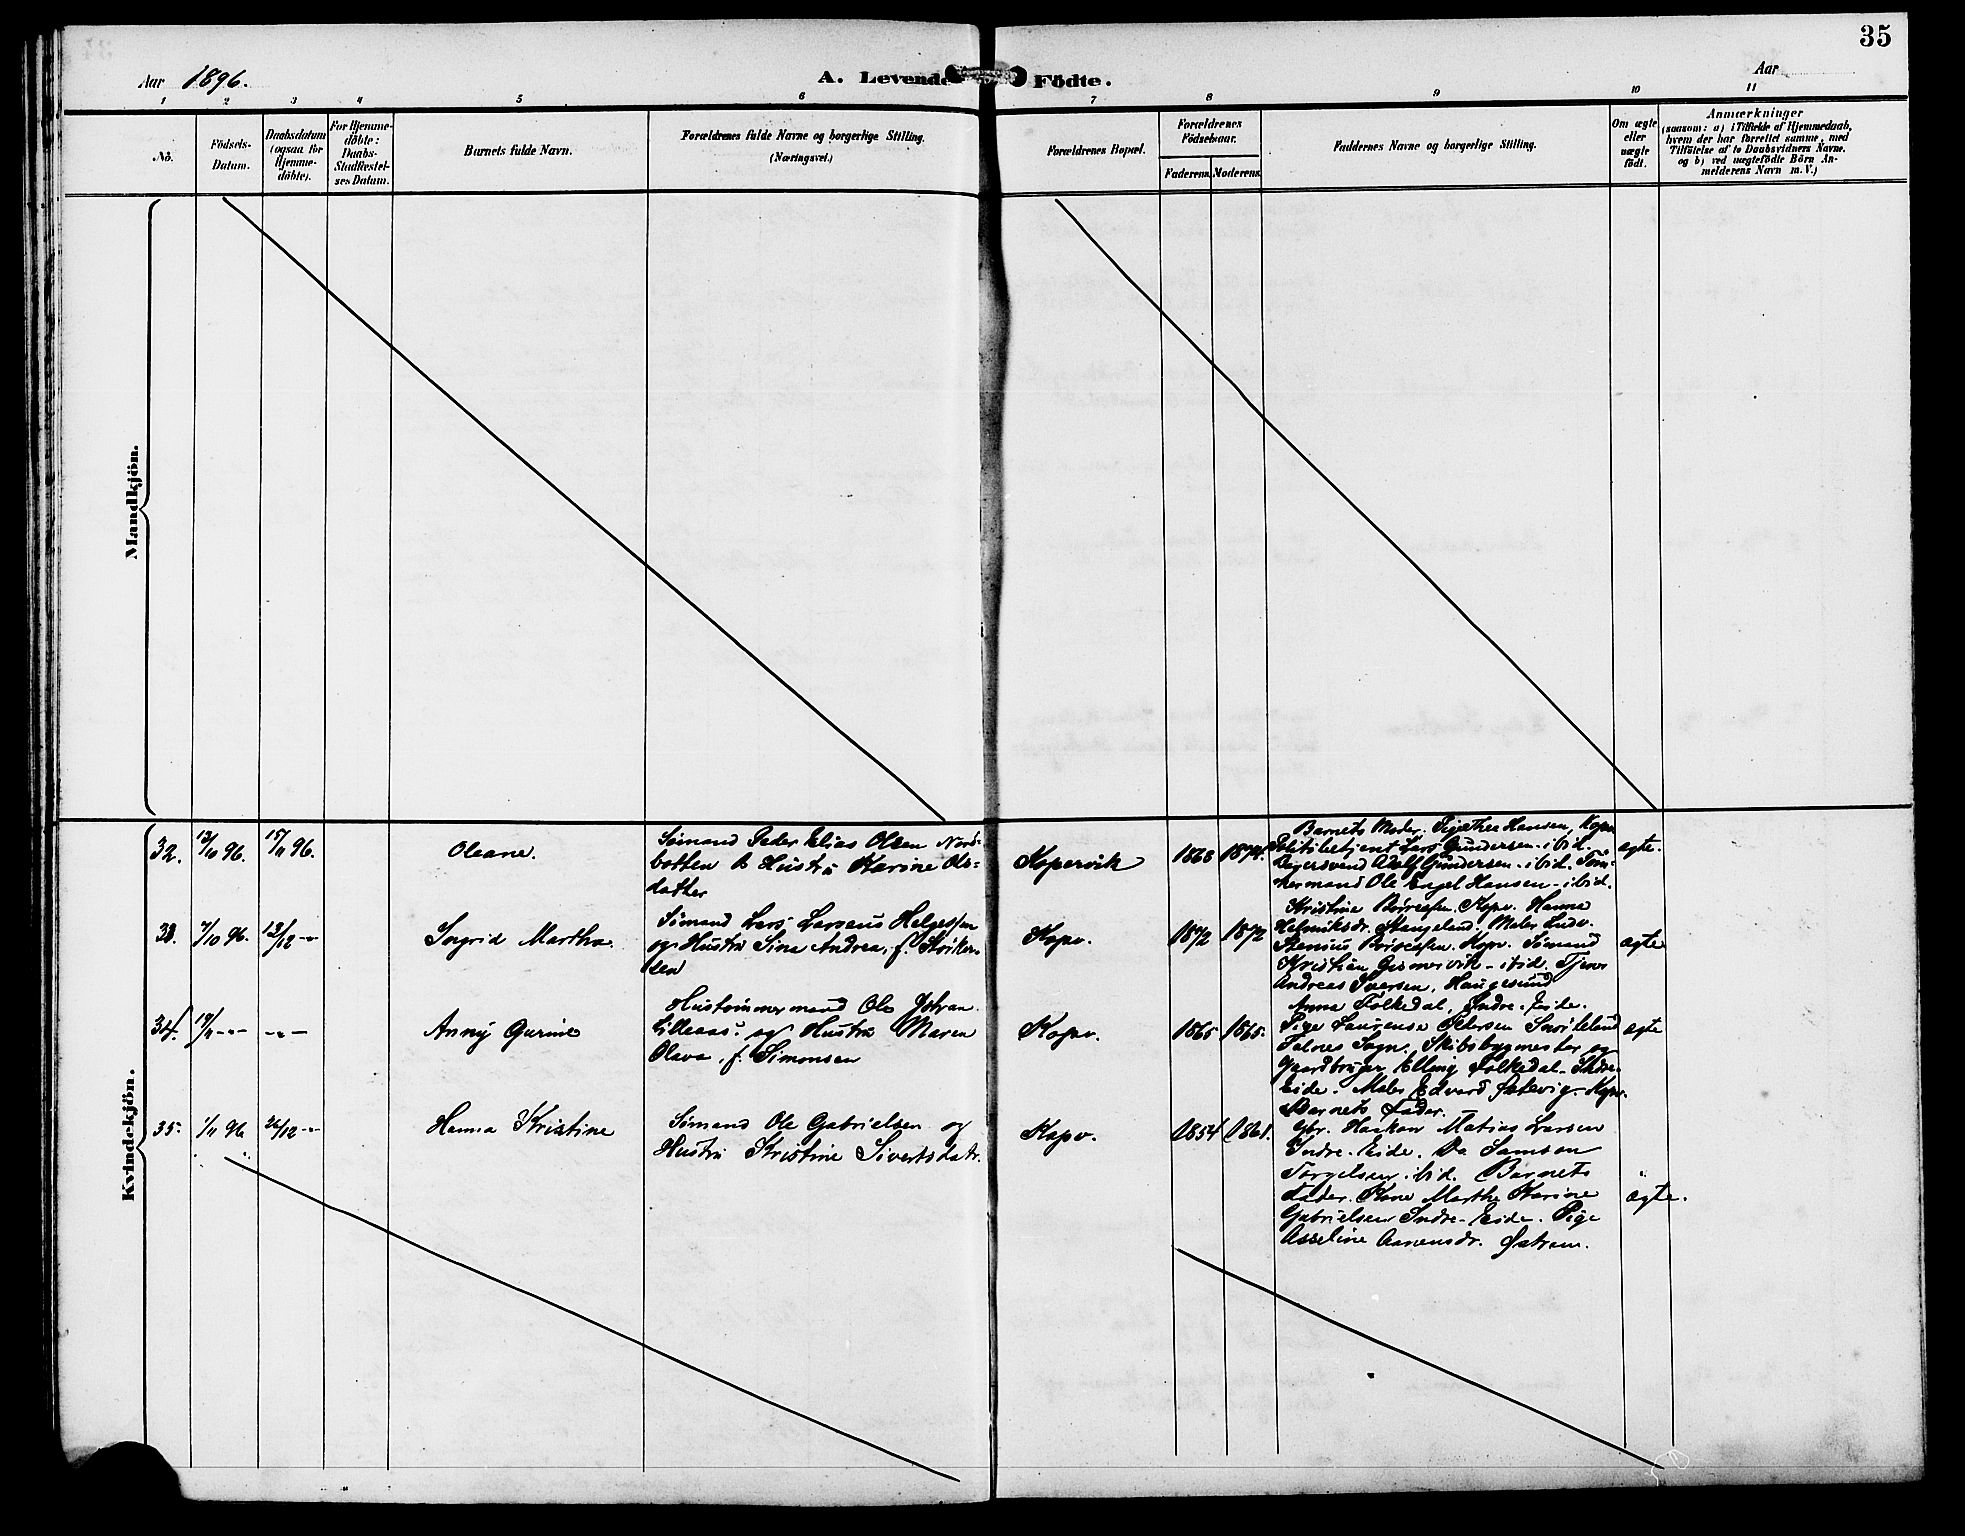 35
Aar 1896.
A. Levende Födte.
Aar
1 2 3 4 5 6 7 8 9 10 11
No.
Födsels-
Datum.
Daabsdatum
(ogsaa for
Hjemme-
döbte).
For Hjemme-
döbte:
Daabs-
Stadfæstel-
ses Datum.
Barnets fulde Navn.
Forældrenes fulde Navne og borgerlige Stilling.
(Næringsvei.)
Forældrenes Bopæl.
Forældrenes
Födselsaar.
Faderens. Moderens.
Faddernes Navne og borgerlige Stilling.
Om ægte
eller
uægte
födt.
Anmærkninger
(saasom: a) i Tilfælde af Hjemmedaab,
hvem der har forrettet samme, med
Tilföielse af to Daabsvidners Navne,
og b) ved uægtefödte Börn An-
melderens Navn m. V.)
Mandkjön.
Kvindekjön.
32.
13/10 96.
15/11 96.
Oleane.
Sømand Peder Elias Olsen Nord-
botten & Hustru Karine Ols-
datter
Kopervik
1868 1874.
Barnets Moder. Hansen, Kopv.
Politibetjent Lars Gundersen - ibid.
Bagersvend Adolf Gundersen - ibid. Tøm-
mermand Ole Engel Hansen - ibid.
ægte.
33.
7/10 96.
13/12 -"-
Ingrid Martha
Sømand Lars Larsenius Helgesen
og Hustru Sina Andrea, f.
sen
Kopv.
1872 1872
Kristine Børresen, Kopv. Hanna
Helmiksdr. Stangeland, Maler Ludv.
Stenius Børresen. Kopv. Sømand
Kristian Gismervik - ibid. Tjener
Andreas Iversen, Haugesund
ægte
34.
19/11 -"-
-"-
Anny Gurine
Hustømmermand Ole Johan
Lilleaas og Hustru Maren
Olava, f. Simonsen
Kopv.
1865 1865.
Anna Folkedal, Indre-Eide.
Pige Laurense Petersen Snørteland
Falnes Sogn. Skibsbygmester og
Gaardbruger Elling Folkedal - Indre-
Eide. Maler Edvard Satevig - Kopv.
Barnets Fader.
ægte
35.
1/11 96
26/12 -"-
Hanna Kristine
Sømand Ole Gabrielsen og
Hustru Kristine Sivertsdatr.
Kopv.
1854 1861.
Gbr. Haakon Matias Larsen
Indre-Eide. Do Samson
Torgelsen ibid. Barnets
Fader. Kone Marthe Karine
Gabrielsen Indre-Eide. Pige
Asseline Aanensdr. Østrem.
ægte.